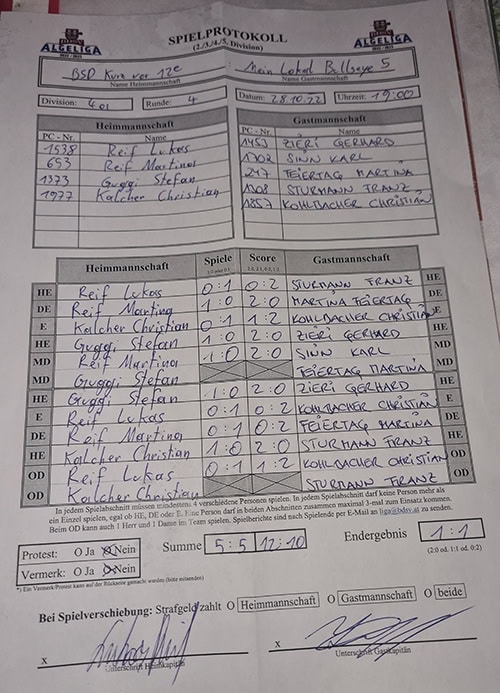 ALGELIGA
SPIELPROTOKOLL
(2./3./4./5. Division)
ALGELIGA
BSD Kurz vor 12e : Mein Lokal Bullseye 5
Name Heimmannschaft Name Gastmannschaft
Division: 401 Runde: 4 Datum: 28.10.22 Uhrzeit: 19:00
Heimmannschaft Gastmannschaft
PC - Nr. Name PC - Nr. Name
1538 Reif Lukas 1453 ZIERI GERHARD
653 Reif Martina 1702 SINN KARL
1373 Guggi Stefan 217 FEIERTAG MARTINA
1977 Kalcher Christian 1708 STURMANN FRANZ
1857 KOHLBACHER CHRISTIAN
Heimmannschaft Spiele Score Gastmannschaft
HE Reif Lukas 0:1 0:2 STURMANN FRANZ HE
DE Reif Martina 1:0 2:0 MARTINA FEIERTAG DE
E Kalcher Christian 0:1 1:2 KOHLBACHER CHRISTIAN E
HE Guggi Stefan 1:0 2:0 ZIERI GERHARD HE
MD Reif Martina 1:0 2:0 SINN KARL MD
MD Guggi Stefan FEIERTAG MARTINA MD
HE Guggi Stefan 1:0 2:0 ZIERI GERHARD HE
E Reif Lukas 0:1 0:2 KOHLBACHER CHRISTIAN E
DE Reif Martina 0:1 0:2 FEIERTAG MARTINA DE
HE Kalcher Christian 1:0 2:0 STURMANN FRANZ HE
OD Reif Lukas 0:1 1:2 KOHLBACHER CHRISTIAN OD
OD Kalcher Christian STURMANN FRANZ OD
In jedem Spielabschnitt müssen mindestens 4 verschiedene Personen spielen. In jedem Spielabschnitt darf keine Person mehr als
ein Einzel spielen, egal ob HE, DE oder E. Eine Person darf in beiden Abschnitten zusammen maximal 3-mal zum Einsatz kommen.
Beim OD kann auch 1 Herr und 1 Dame im Team spielen. Spielberichte sind nach Spielende per E-Mail an liga@bdsv.at zu senden.
Protest: O Ja O Nein Summe 5:5 12:10 Endergebnis 1:1
Vermerk: O Ja O Nein (2:0 od. 1:1 od. 0:2)
*) Ein Vermerk/Protest kann auf der Rückseite gemacht werden (bitte mitsenden)
Bei Spielverschiebung: Strafgeld zahlt O Heimmannschaft O Gastmannschaft O beide
x x
Unterschrift Heimkapitän Unterschrift Gastkapitän